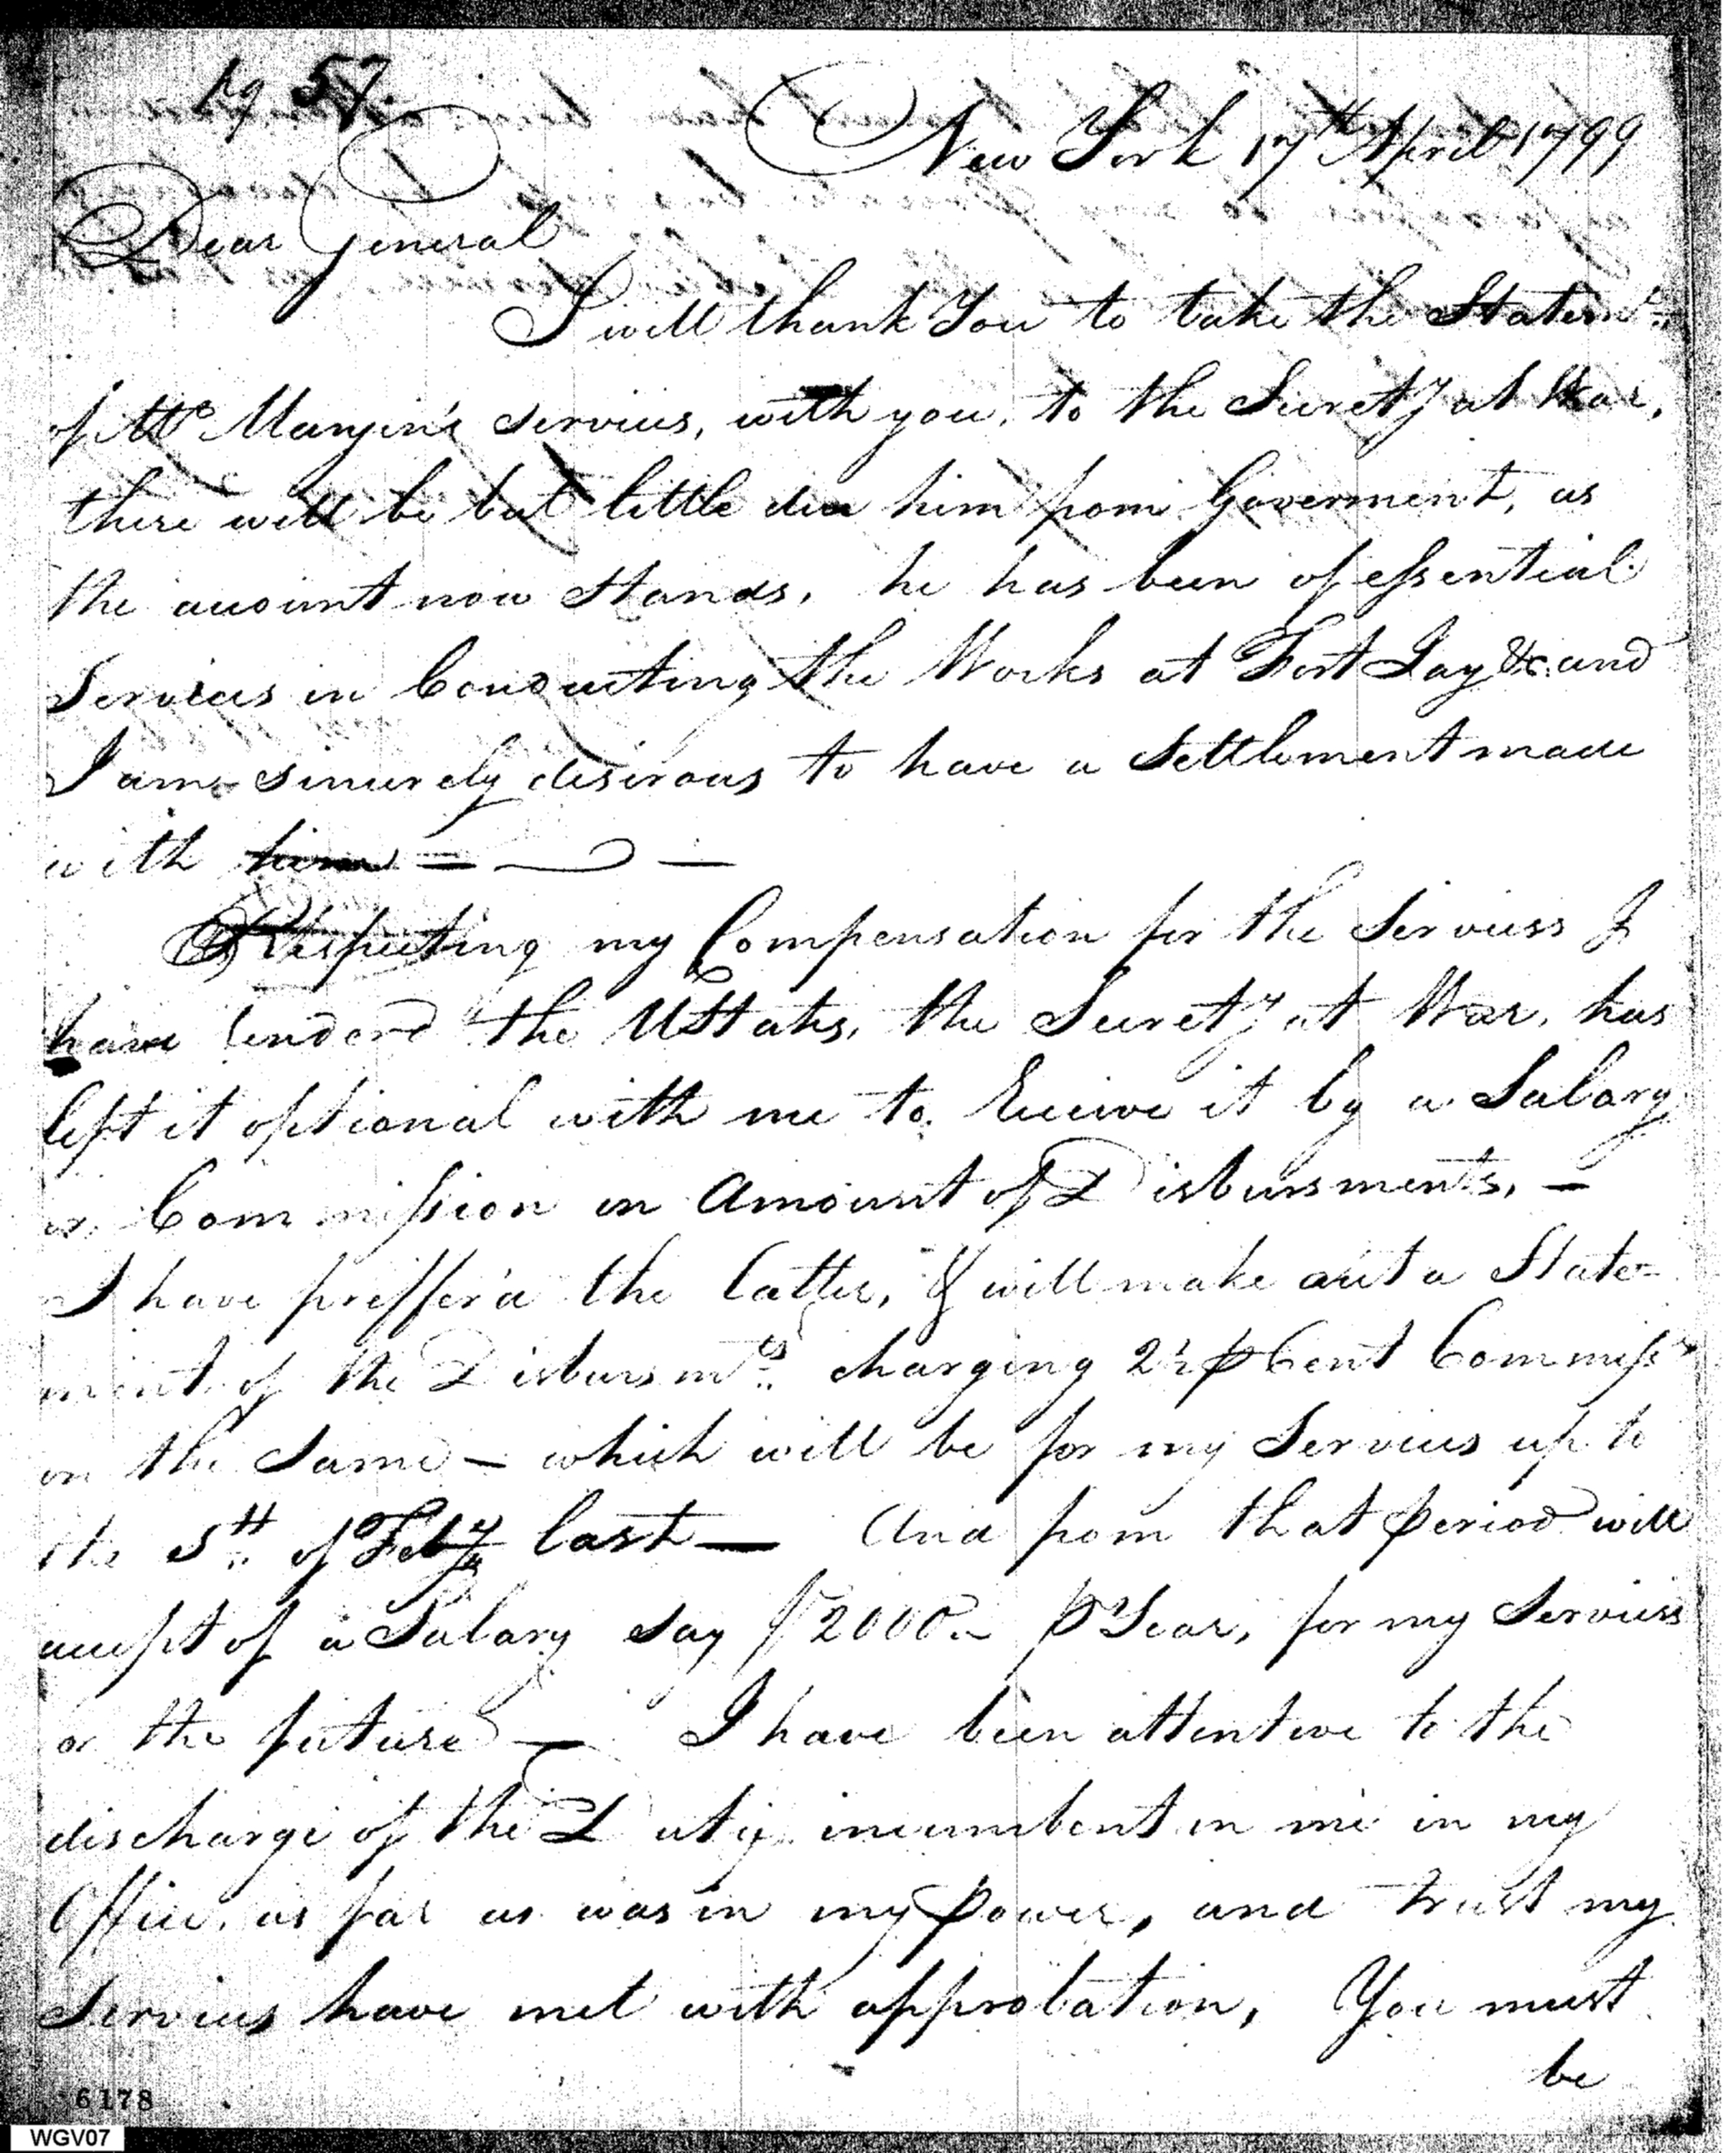 pg 57.
New York 17th April 1799
Dear General
I will thank You to take the Statemt.
of Mr Mangin's services, with you, to the Secrety at War,
there will be but little due him from Goverment, as
the account now Stands, he has been of essential
Services in Conducting the Works at Fort Jay &c. and
I am sincerely desirous to have a Settlement made
with him —
Respecting my Compensation for the Serviess I
have renderd the UStates, the Secrety at War, has
left it optional with me to Receive it by a Salary
or Commission on Amount of Disbursments, —
I have preffer'd the latter, & will make out a State-
ment of the Disbursmts. charging 2½ p Cent Commissn
on the Same — which will be for my Services up to
the 5th of Feby last — And from that period will
accept of a Salary say $2000 .. p Year, for my Serviess
or the future — I have been attentive to the
discharge of the Duty incumbent on me in my
Office, as far as was in my power, and trust my
Services have met with approbation, You must
be
6178
WGV07